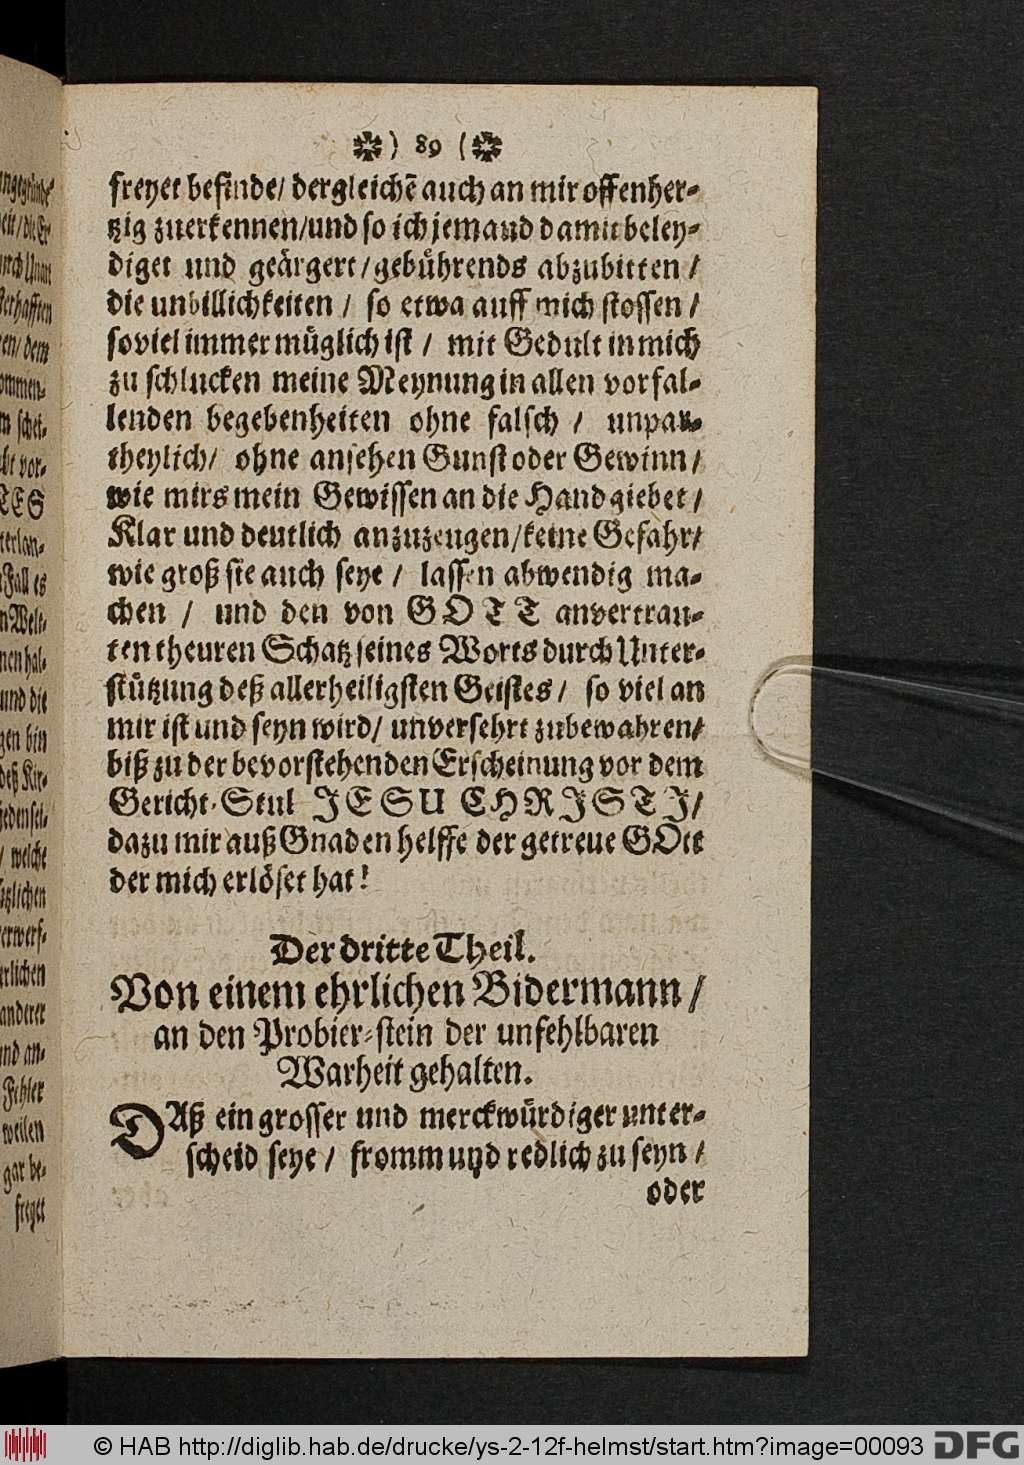 ngegründe
eit/die Er
urch Unart
sterhafften
en/dem
ommen-
m schei-
bt vor-
TES
terlan-
Fall es
n Welt-
nen hal-
und die
gen bin
deß Kir-
jedensel-
/ welche
ützlichen
verwerf-
erlichen
anderer
nd an-
Fehler
weilen
gar be-
freyet
) 89 (
freyet befinde/ dergleichẽ auch an mir offenher-
tzig zuerkennen/und so ich jemand damit beley-
diget und geärgert/gebührends abzubitten /
die unbillichkeiten / so etwa auff mich stossen /
soviel immer müglich ist / mit Gedult in mich
zu schlucken meine Meynung in allen vorfal-
lenden begebenheiten ohne falsch / unpar-
theylich/ ohne ansehen Gunst oder Gewinn /
wie mirs mein Gewissen an die Hand giebet /
Klar und deutlich anzuzeugen/keine Gefahr/
wie groß sie auch seye / lassen abwendig ma-
chen / und den von GOTT anvertrau-
ten theuren Schatz seines Worts durch Unter-
stützung deß allerheiligsten Geistes / so viel an
mir ist und seyn wird/ unversehrt zubewahren/
biß zu der bevorstehenden Erscheinung vor dem
Gericht-Stul JESU CHRJSTJ/
dazu mir auß Gnaden helffe der getreue GOtt
der mich erlöset hat!
Der dritte Theil.
Von einem ehrlichen Bidermann /
an den Probier-stein der unfehlbaren
Warheit gehalten.
DAß ein grosser und merckwürdiger unter-
scheid seye / fromm und redlich zu seyn /
oder
© HAB http://diglib.hab.de/drucke/ys-2-12f-helmst/start.htm?image=00093
DFG